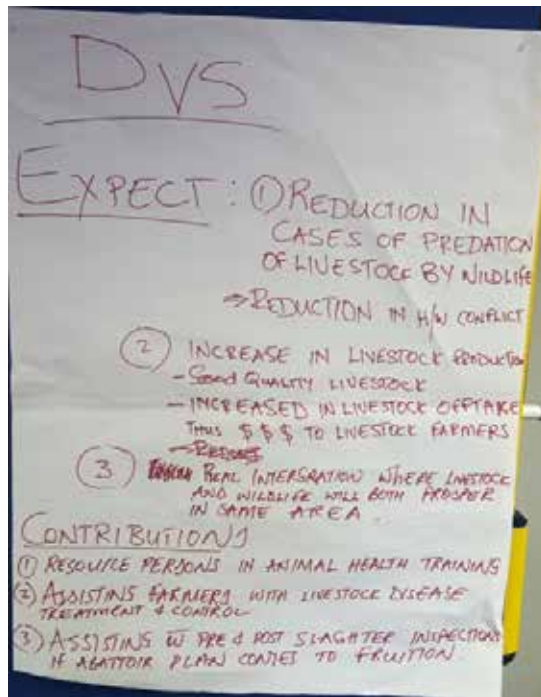 DVS
EXPECT: ① REDUCTION IN
CASES OF PREDATION
OF LIVESTOCK BY WILDLIFE
⇒ REDUCTION IN H/W CONFLICT
② INCREASE IN LIVESTOCK PRODUCTION
- Good QUALITY LIVESTOCK
- INCREASED IN LIVESTOCK OFFTAKE
THUS $ $ $ TO LIVESTOCK FARMERS
③ REAL INTERGRATION WHERE LIVESTOCK
AND WILDLIFE WILL BOTH PROSPER
IN SAME AREA
CONTRIBUTIONS
① RESOURCE PERSONS IN ANIMAL HEALTH TRAINING
② ASSISTING FARMERS WITH LIVESTOCK DISEASE
TREATMENT & CONTROL
③ ASSISTING W PRE & POST SLAGHTER INSPECTIONS
IF ABATTOIR PLAN COMES TO FRUITION